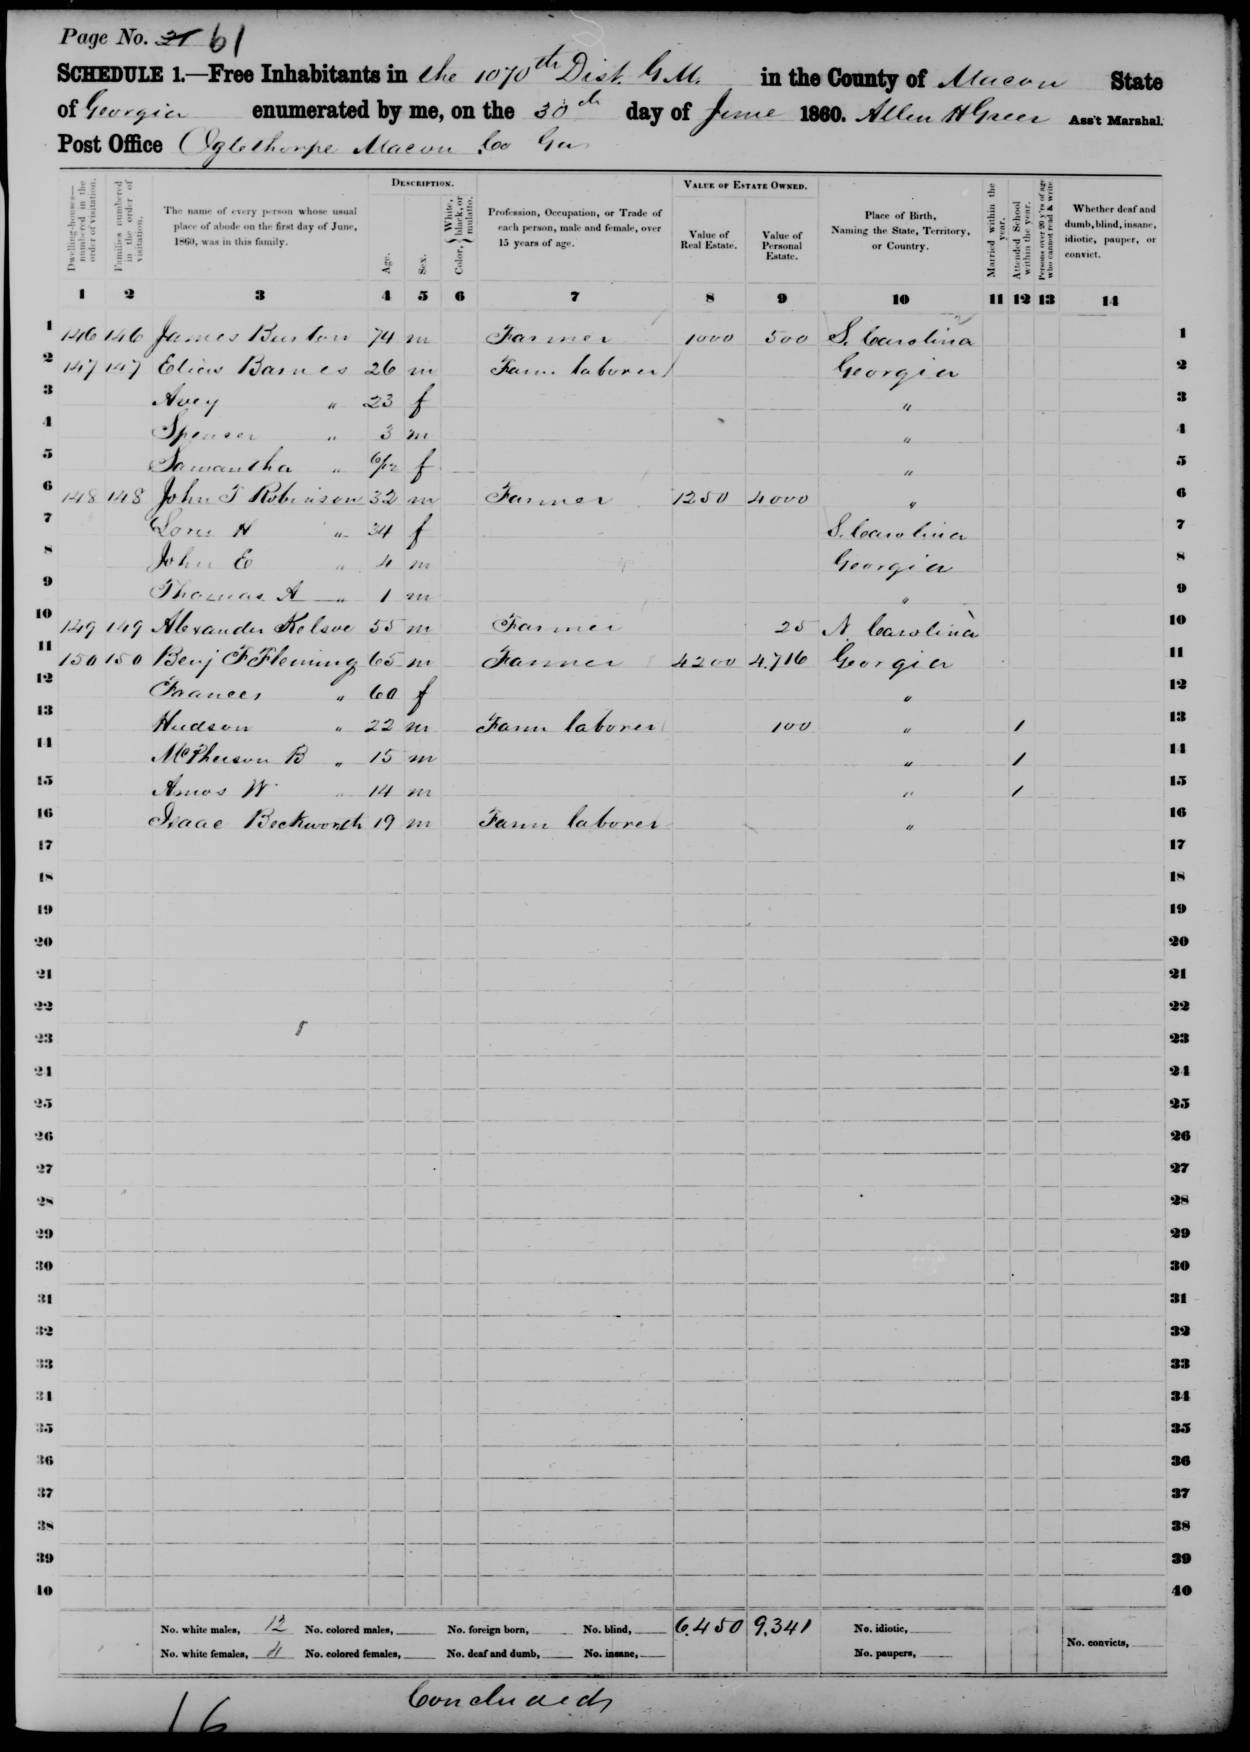 Page No. 21 61
SCHEDULE 1.—Free Inhabitants in the 1070th Dist. G.M. in the County of Macon State
of Georgia enumerated by me, on the 30th day of June 1860. Allen H Greer Ass't Marshal.
Post Office Oglethorpe Macon Co Ga
DESCRIPTION. VALUE OF ESTATE OWNED.
Dwelling-houses—numbered in the order of visitation.
Families numbered in the order of visitation.
The name of every person whose usual place of abode on the first day of June, 1860, was in this family.
Age.
Sex.
Color, { White, black, or mulatto.
Profession, Occupation, or Trade of each person, male and female, over 15 years of age.
Value of Real Estate.
Value of Personal Estate.
Place of Birth, Naming the State, Territory, or Country.
Married within the year.
Attended School within the year.
Persons over 20 y'rs of age who cannot read & write.
Whether deaf and dumb, blind, insane, idiotic, pauper, or convict.
1 2 3 4 5 6 7 8 9 10 11 12 13 14
1 146 146 James Burton 74 m Farmer 1000 500 S. Carolina 1
2 147 147 Elias Barnes 26 m Farm laborer Georgia 2
3 Avey " 23 f " 3
4 Spenser " 3 m " 4
5 Samantha " 6/12 f " 5
6 148 148 John T Robinson 32 m Farmer 1250 4000 " 6
7 H " 34 f S. Carolina 7
8 John E " 4 m Georgia 8
9 Thomas A " 1 m " 9
10 149 149 Alexander Kelsoe 55 m Farmer 25 N. Carolina 10
11 150 150 Benj F Fleming 65 m Farmer 4200 4,716 Georgia 11
12 Frances " 60 f " 12
13 Hudson " 22 m Farm laborer 100 " 1 13
14 McPherson B " 15 m " 1 14
15 Amos W " 14 m " 1 15
16 Isaac Beckworth 19 m Farm laborer " 16
17 17
18 18
19 19
20 20
21 21
22 22
23 23
24 24
25 25
26 26
27 27
28 28
29 29
30 30
31 31
32 32
33 33
34 34
35 35
36 36
37 37
38 38
39 39
40 40
No. white males, 12 No. colored males, No. foreign born, No. blind, 6,450 9,341 No. idiotic,
No. white females, 4 No. colored females, No. deaf and dumb, No. insane, No. paupers, No. convicts,
Concluded
16